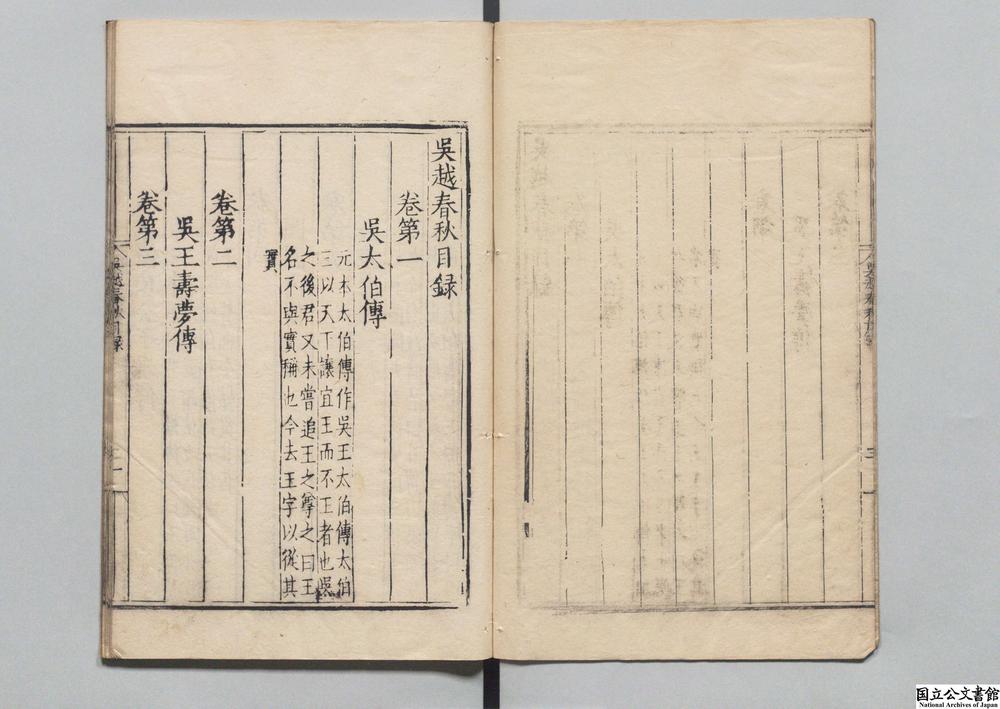 吳越春秋目録
卷第一
吳太伯傳
元本太伯傳作吳王太伯傳太伯
三以天下讓宜王而不王者也吳
之後君又未嘗追王之尊之曰王
名不與實稱也今去王字以從其
實
卷第二
吳王壽夢傳
卷第三
吳越春秋目録
国立公文書館
National Archives of Japan